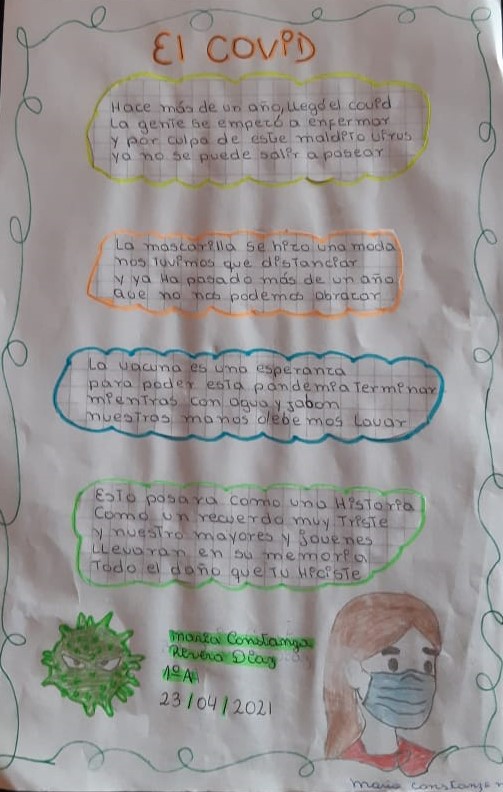 El COVID
Hace más de un año, llegó el covid
La gente se empezó a enfermar
y por culpa de este maldito virus
ya no se puede salir a pasear
La mascarilla se hizo una moda
nos tuvimos que distanciar
y ya ha pasado más de un año
que no nos podemos abrazar
La vacuna es una esperanza
para poder esta pandemia terminar
mientras con agua y jabon
nuestras manos debemos lavar
Esto pasara como una historia
Como un recuerdo muy triste
y nuestro mayores y jovenes
llevaran en su memoria
Todo el daño que tu hiciste
Maria Constanza
Rivera Diaz
1º A
23/04/2021
Maria Constanza